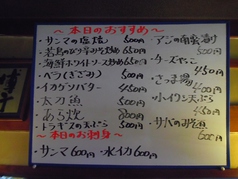 ～本日のおすすめ～
・サンマの塩焼 500円
650円
・海鮮ホワイトソース炒め 650円
・ベラ(きざみ) 500円
・イカゲソバター 450円
・太刀魚 500円
・あら炊 500円
・トラギスの天ぷら 500円
～本日のお刺身～
・サンマ 600円 ・水イカ 600円
・アジの南蛮漬け
500円
・チーズ
450円
・さつま汁
400円
・小イワシ天ぷら
450円
・サバのみそ煮
500円